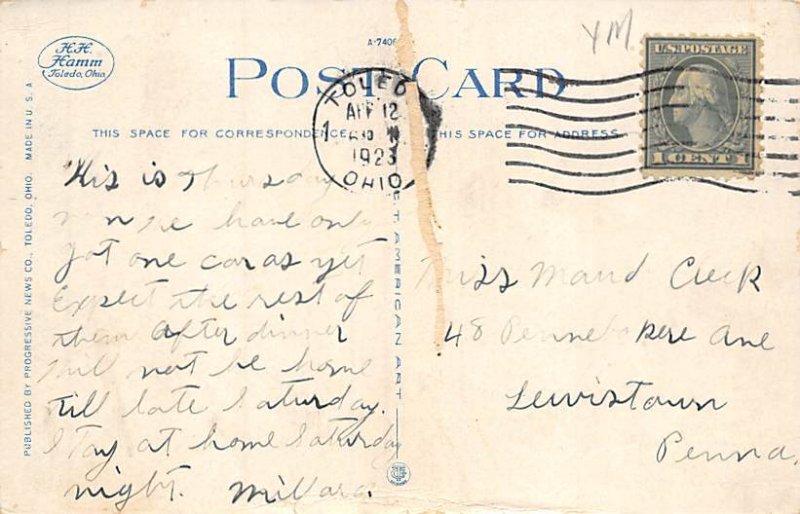 H.H.
Hamm
Toledo, Ohio.
A-7406
YM
POST CARD
U.S. POSTAGE
1 CENT 1
TOLEDO
1
APR 12
1923
OHIO
THIS SPACE FOR CORRESPONDENCE
THIS SPACE FOR ADDRESS
PUBLISHED BY PROGRESSIVE NEWS CO., TOLEDO, OHIO. MADE IN U.S.A
AMERICAN ART
This is Thursday
we have only
got one car as yet
Expect the rest of
them after dinner
Will not be home
till late Saturday.
Stay at home Saturday
night. Millard.
Miss Maud Cuck
48 Pennebakere Ave
Lewistown
Penna.